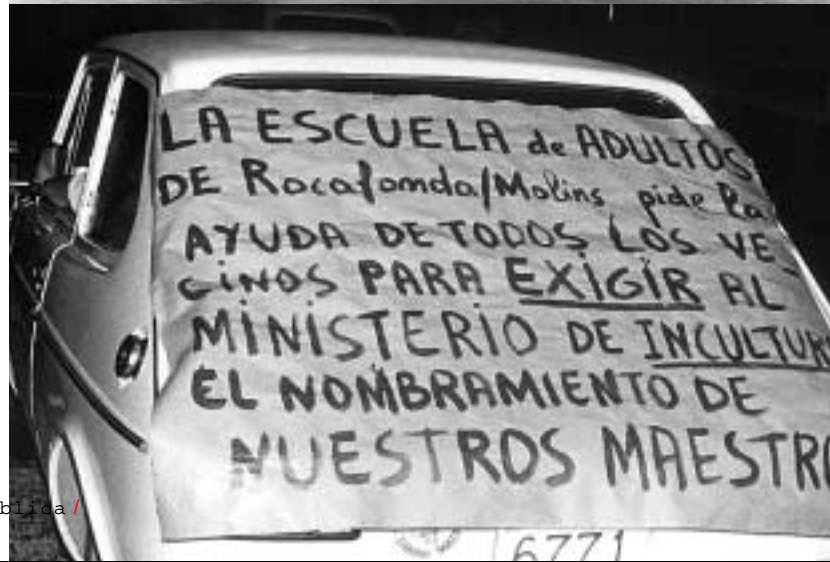 LA ESCUELA de ADULTOS
DE Rocafonda/Molins pide la
AYUDA DE TODOS LOS VE-
CINOS PARA EXIGIR AL
MINISTERIO DE INCULTURA
EL NOMBRAMIENTO DE
NUESTROS MAESTRO
blica/
6771